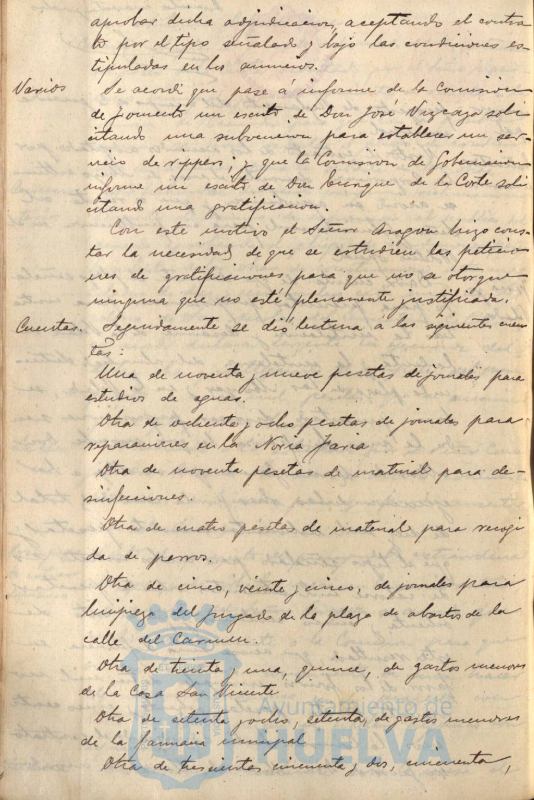 aprobar dicha adjudicacion, aceptando el contra-
to por el tipo señalado y bajo las condiciones es-
tipuladas en los anuncios.
Varios Se acordó que pase á informe de la Comision
de fomento un escrito de Don José Vizcaya soli-
citando una subvencion para establecer un ser-
vicio de rippers; y que la Comision de Gobernacion
informe un escrito de Don Enrique de la Corte soli-
citando una gratificacion.
Con este motivo el Señor Aragon hizo cons-
tar la necesidad de que se estudien las peticio-
nes de gratificaciones para que no se otorgue
ninguna que no esté plenamente justificada.
Cuentas. Seguidamente se dió lectura a las siguientes cuen-
tas:
Una de noventa y nueve pesetas de jornales para
estudios de aguas.
Otra de ochenta y ocho pesetas de jornales para
reparaciones en la Noria
Otra de noventa pesetas de material para de-
sinfecciones.
Otra de cuatro pesetas de material para recogi-
da de perros.
Otra de cinco, veinte y cinco, de jornales para
limpieza del Juzgado de la plaza de abastos de la
calle del Carmen.
Otra de treinta y una, quince, de gastos menores
de la Casa San Vicente
Otra de setenta y ocho, setenta, de gastos menores
de la farmacia municipal
Otra de trescientas cincuenta y dos, cincuenta,
Ayuntamiento de
HUELVA